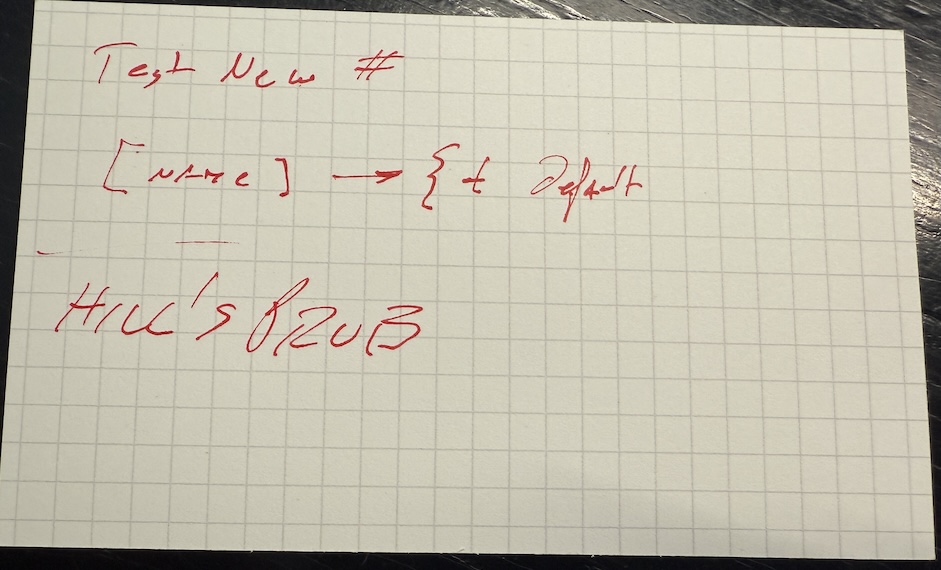 Test New #
[NAME] → { t Default
HILL's